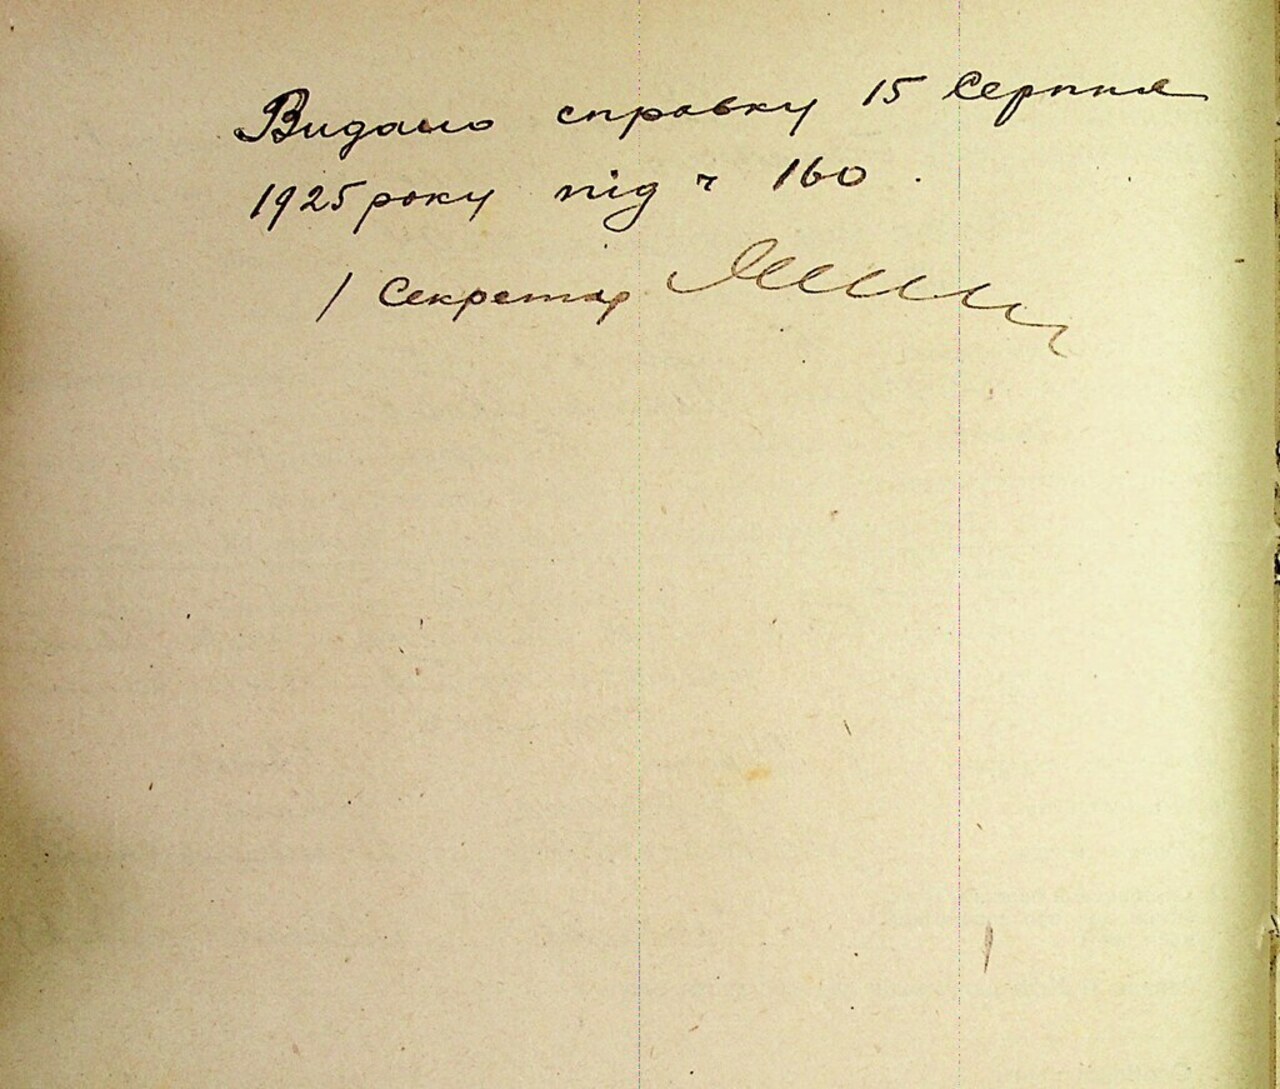 Видано справку 15 Серпня
1925 року під ч 160.
/ Секретар